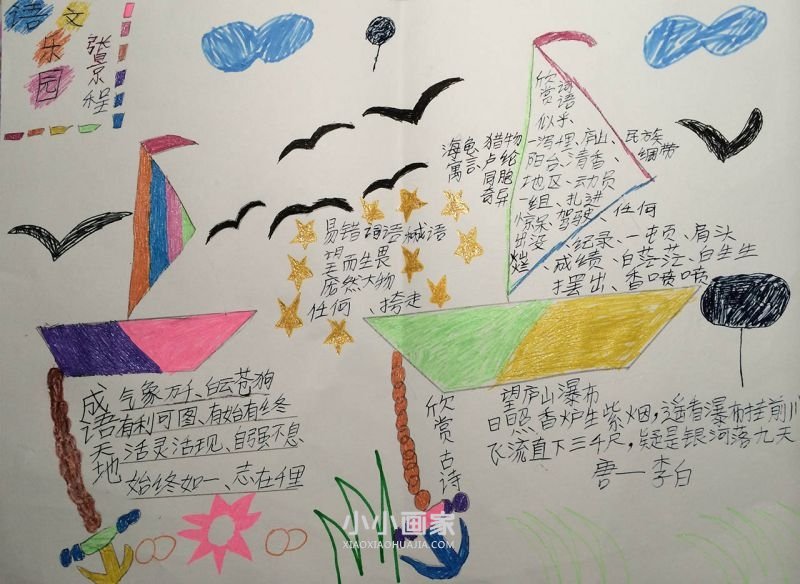 语文
乐园
张景程
欣赏词语
似乎、
海龟、猎物
一泻、埋、庐山、民族
寓言、卢伦
阳台、清香、绸带
同胞
地区、动员
奇异
一组、扎进
惊呆、驾驶、任何
出没、纪录、一顿、肩头
、成绩、白茫茫、白生生
摆出、香喷喷
易错词语
望而生畏
庞然大物
任何、挎走
成语天地
气象万千、白云苍狗
有利可图、有始有终
活灵活现、自强不息
始终如一、志在千里
欣赏古诗
望庐山瀑布
日照香炉生紫烟,遥看瀑布挂前川
飞流直下三千尺,疑是银河落九天
唐—李白
小小画家
XIAOXIAOHUAJIA.COM